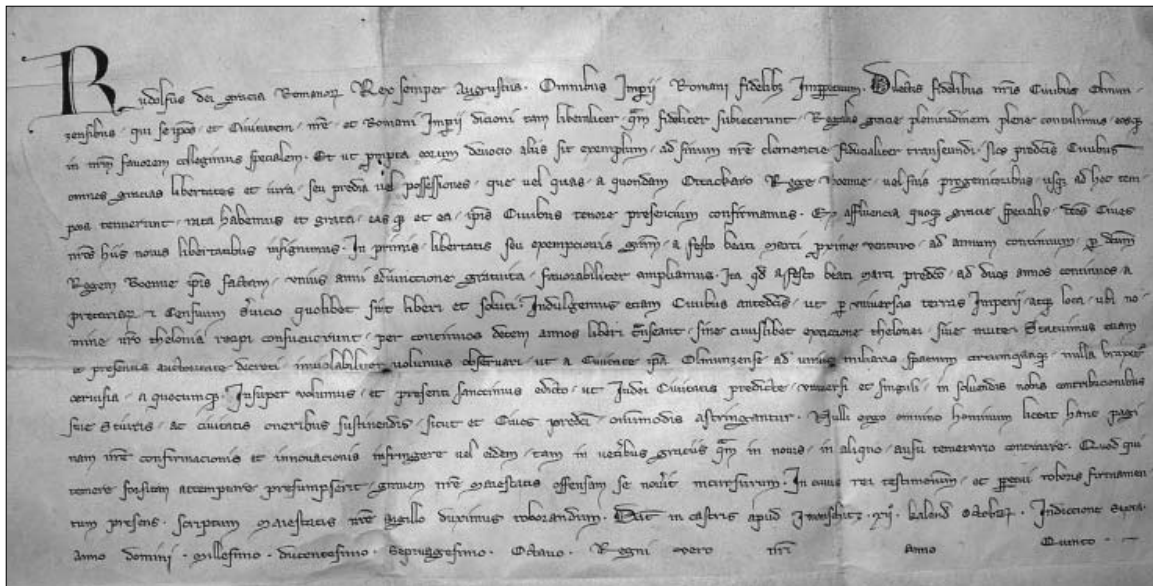 Rudolfus dei gracia Romanorꝝ Rex semper Augustus. Omnibus Imperij Romani fidelibꝫ Imperpetuum. Dilectis fidelibus nr̄is Civibus Olmun-
zensibus, qui se ipsos et Civitatem, nr̄e et Romani Imperij dicioni tam liberaliter, qͣm fideliter subiecerunt, Regalis gracie plenitudinem plene contulimus, eosqꝫ
in nr̄m favorem collegimus specialem. Et ut prompta eorum devocio aliis sit exemplum, ad sinum nr̄e clemencie fiducialiter transeundi, dictis predictis Civibus
omnes gracias libertates et iura, seu predia vel possessiones, que vel quas, a quondam Ottackaro Rege Boemie, vel suis progenitoribus usqꝫ ad hec tem-
pora tenuerunt, rata habemus et grata, eas qꝫ et ea, ipsis Civibus tenore presencium confirmamus. Ex affluencia quoqꝫ gracie specialis, dc̄os Cives
nr̄os hiis novis libertatibus insignimus. In primis, libertatis seu exempcionis gr̄am, a festo beati Marci proxime venturo, ad annum continuum, ꝑ dictum
Regem Boemie ip̄is factam, unius anni adiunccione gratuita, favorabiliter ampliamus. Ita qd̄ a festo beati Marci predicto, ad duos annos continuos, a
precariarꝝ et Censuum servicio quolibet sint liberi et soluti. Indulgemus eciam Civibus antedictis, ut ꝑ universas terras Imperij, atqꝫ loca, ubi no-
mine nr̄o thelonia recipi consueverunt, per continuos decem annos liberi transeant, sine cuiuslibet exaccione thelonei, sive mute. Statuimus eciam
et presentis auctoritate decreti, inviolabiliter volumus observari, ut a Civitate ip̄a Olmunzense ad unius miliaris spacium circumquaqꝫ, nulla braxetur
cervisia, a quocumqꝫ. Insuper volumus, et presenti sanccimus edicto, ut Iudei Civitatis predicte, universi et singuli, in solvendis nobis contribucionibus
sive Steuris, ac civitatis oneribus sustinendis, sicut et Cives predicti, omnimodis astringantur. Nulli ergo omnino hominum liceat hanc pagi
nam nr̄e confirmacionis et innovacionis infringere vel eidem, tam in veteribus graciis qͣm in novis, in aliquo, ausu temerario contraire. Quod qui
temere forsitan attemptare presumpserit, gravem nr̄e maiestatis offensam se noverit incursurum. In cuius rei testimonium, et perpetui roboris firmamen
tum presens scriptum maiestatis nr̄e sigillo duximus roborandum. Dat̄ in castris apud xij. kalend̄ Octobrꝭ. Indiccione Septa.
Anno domini. Millesimo. Ducentesimo. Septuagesimo. Octavo. Regni vero nr̄i Anno Quinto.